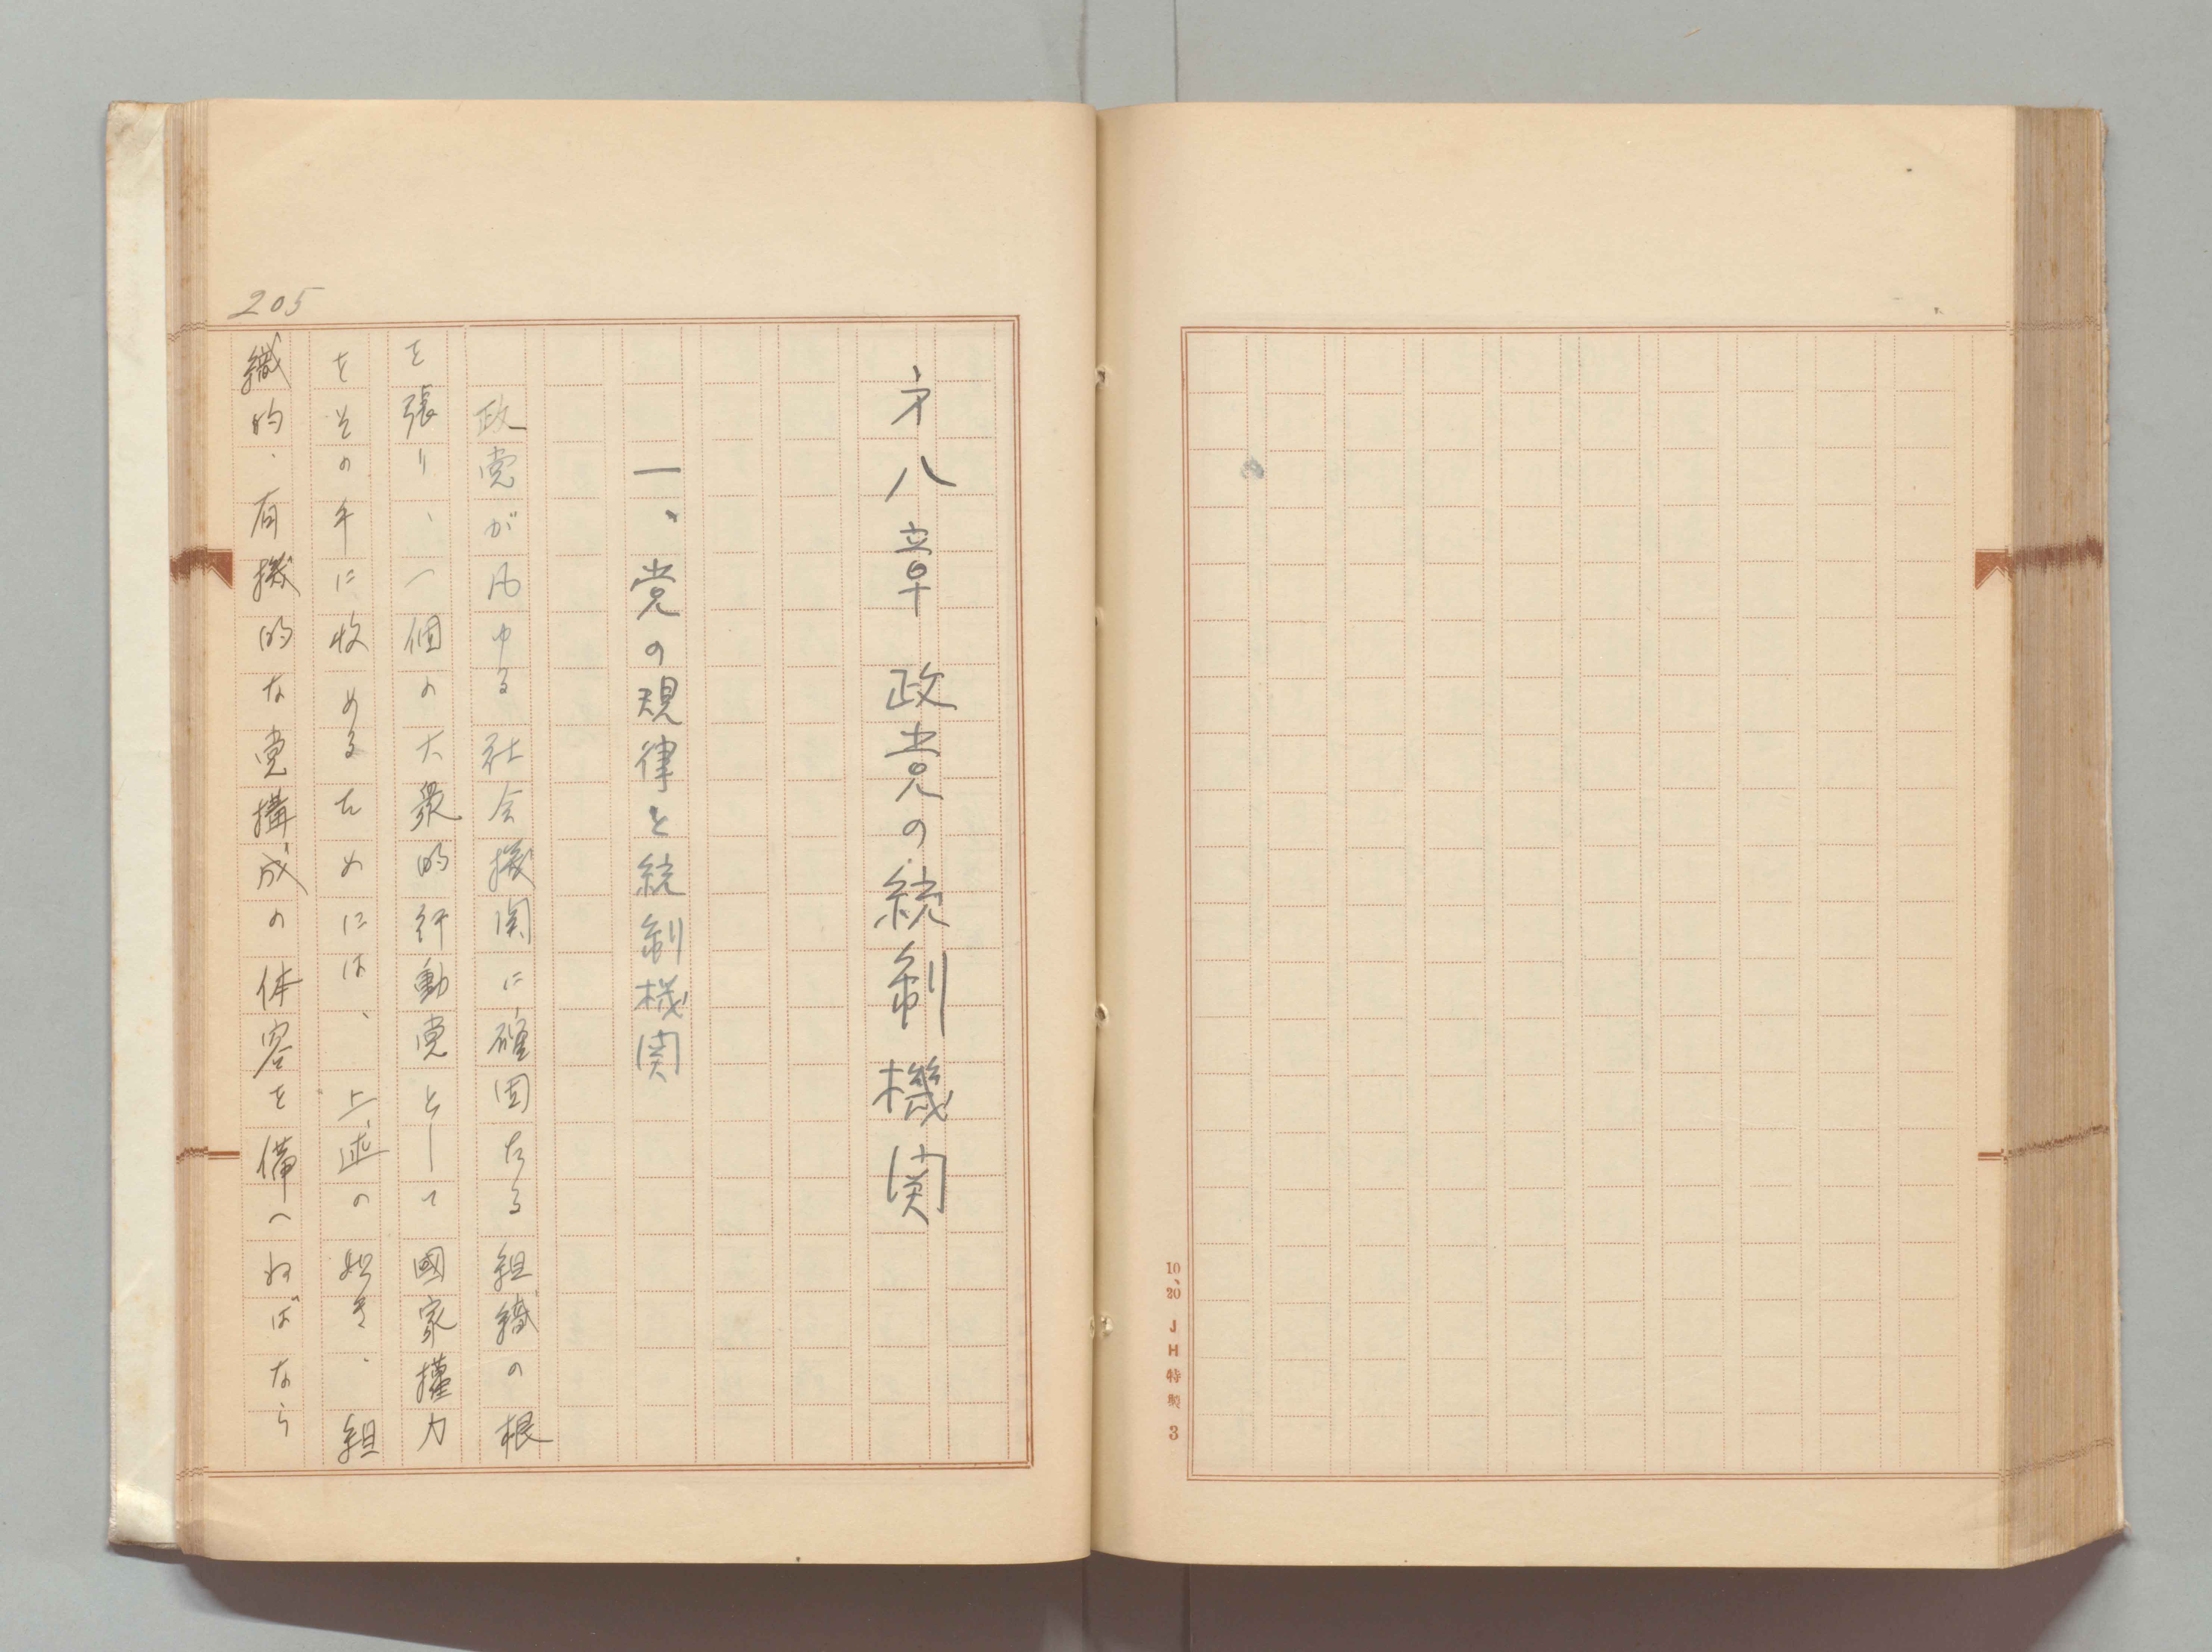 10、20 JH特製 3
才八章 政党の統制機関
一、党の規律と統制機関
政党が凡ゆる社会機関に確固たる組織の根
を張り、一個の大衆的行動党として國家権力
をその手に收めるためには、上述の如き、組
織的、有機的な党構成の体容を備へねばなら
205